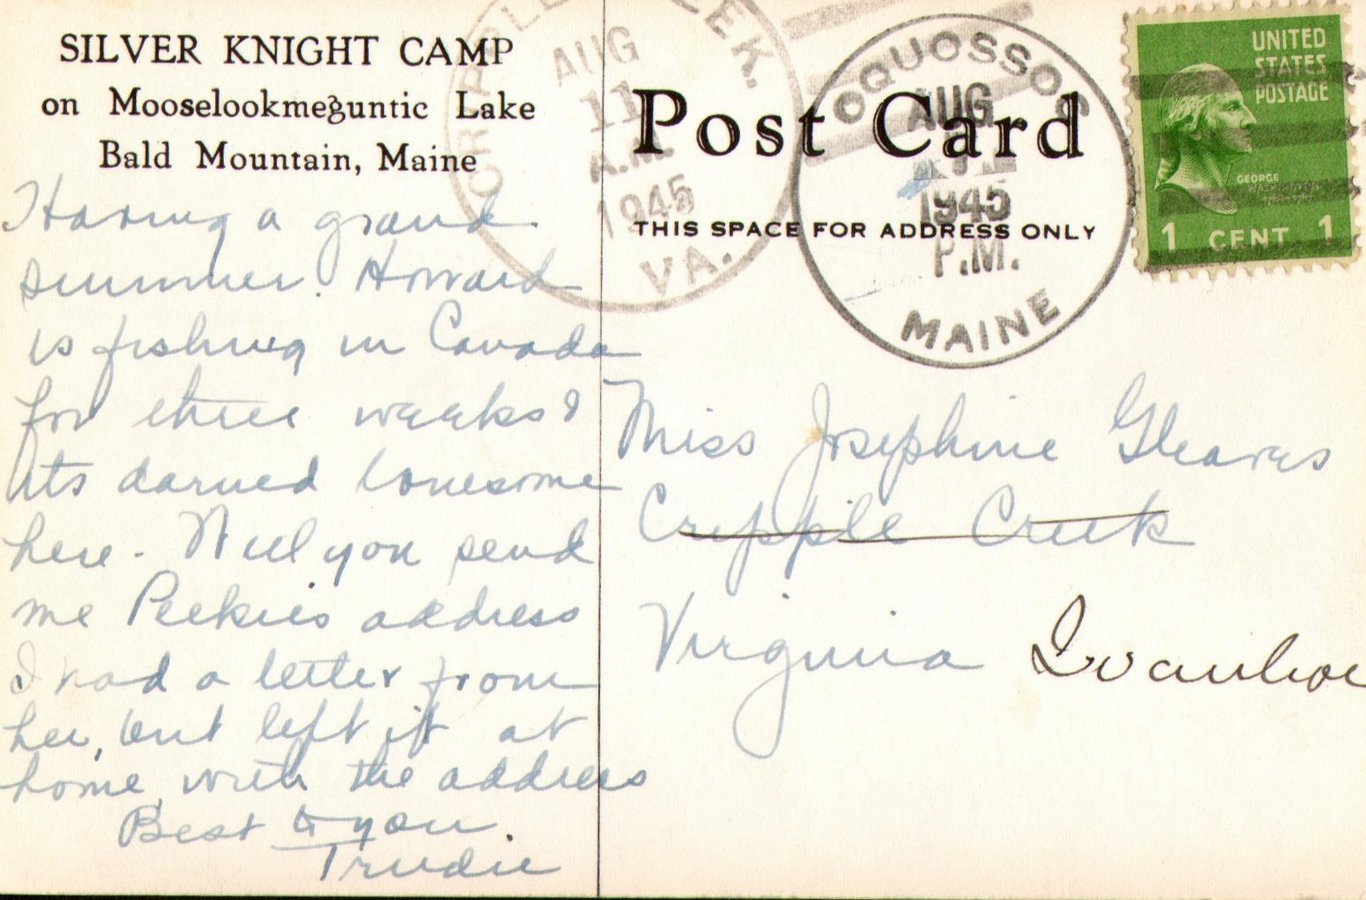 SILVER KNIGHT CAMP
on Mooselookmeguntic Lake
Bald Mountain, Maine
Having a grand
summer. Howard
is fishing in Canada
for three weeks &
its darned lonesome
here - Will you send
me Peekie's address
I had a letter from
her, but left it at
home with the address
Best to you.
Trudie
CRIPPLE CREEK.
AUG
11
A.M.
1945
VA.
Post Card
THIS SPACE FOR ADDRESS ONLY
OQUOSSOC
AUG
1945
P.M.
MAINE
UNITED
STATES
POSTAGE
GEORGE
WASHINGTON
1 CENT 1
Miss Josephine Gleaves
Cripple Creek
Virginia Ivanhoe